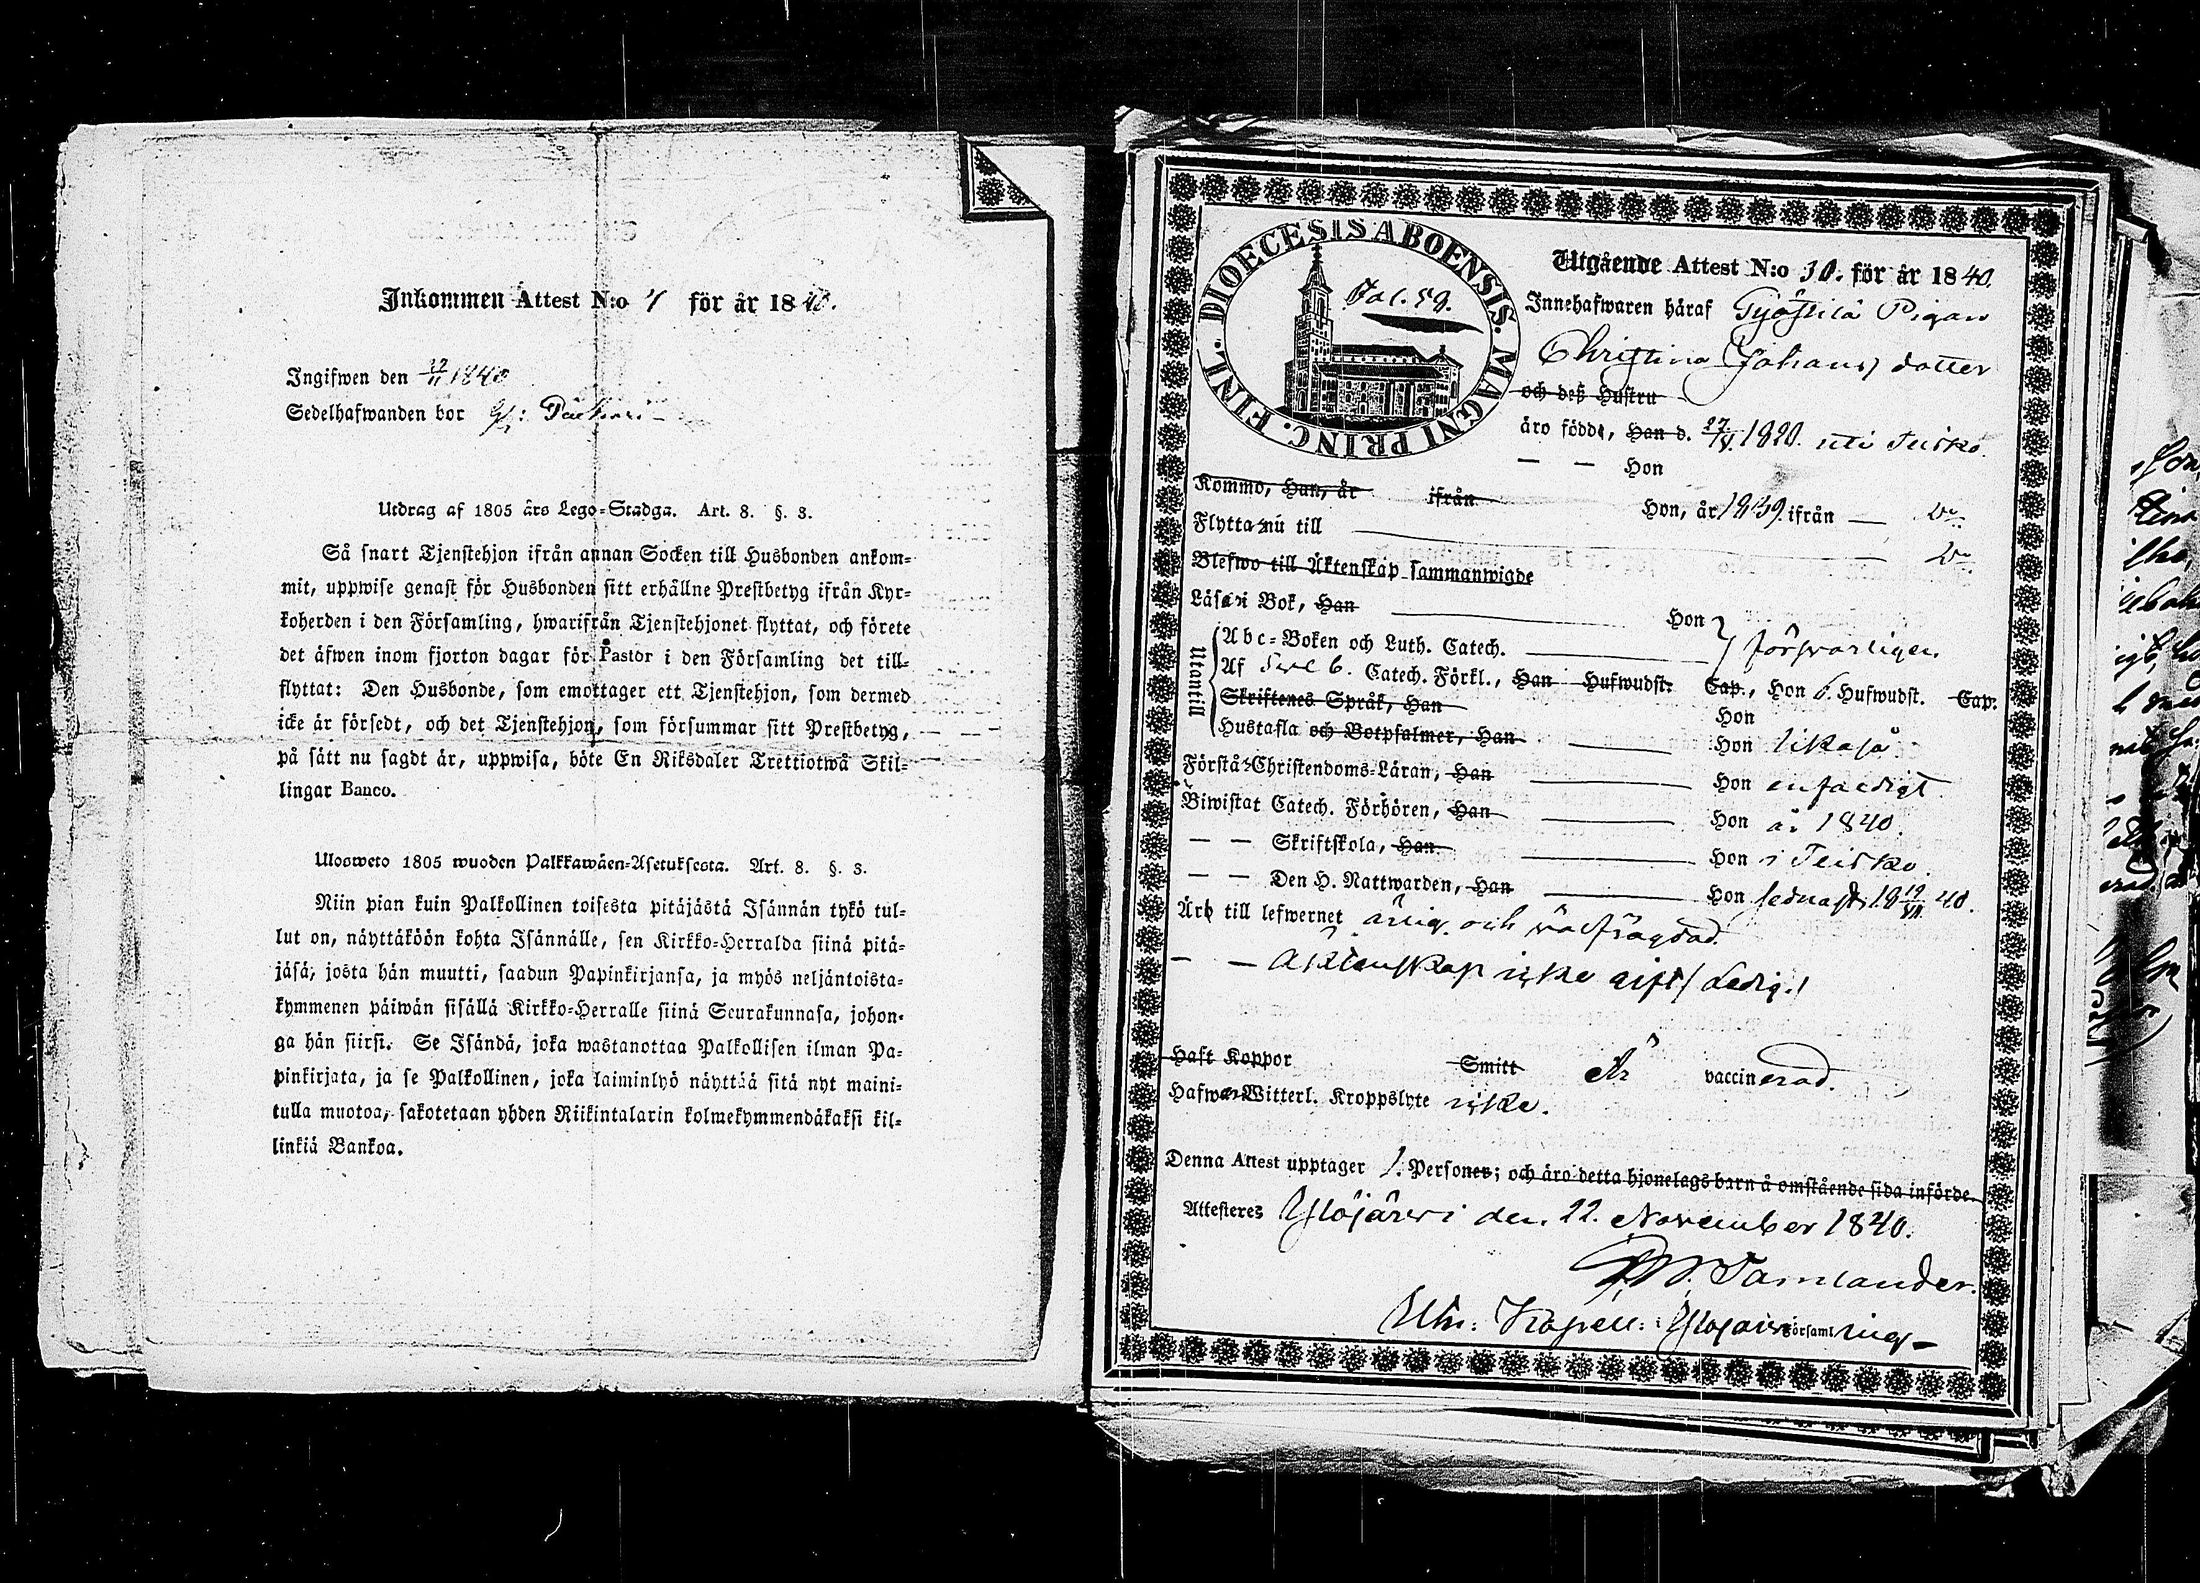 Inkommen Attest N:o 7 för år 1840.
Ingifwen den 29/11 1840
Sedelhafwanden bor
Utdrag af 1805 års Lego-Stadga. Art. 8. §. 3.
Så snart Tjenstehjon ifrån annan Socken till Husbonden ankom-
mit, uppwise genast för Husbonden sitt erhållne Prestbetyg ifrån Kyr-
koherden i den Församling, hwarifrån Tjenstehjonet flyttat, och förete
det äfwen inom fjorton dagar för Pastor i den Församling det till-
flyttat: Den Husbonde, som emottager ett Tjenstehjon, som dermed
icke är försedt, och det Tjenstehjon, som försummar sitt Prestbetyg,
på sätt nu sagdt är, uppwisa, böte En Riksdaler Trettiotwå Skil-
lingar Banco.
Ulosweto 1805 wuoden Palkkawäen-Asetuksesta. Art. 8. §. 3.
Niin pian kuin Palkollinen toisesta pitäjästä Isännän tykö tul-
lut on, näyttäköön kohta Isännälle, sen Kirkko-Herralda siinä pitä-
jäsä, josta hän muutti, saadun Papinkirjansa, ja myös neljäntoista-
kymmenen päiwän sisällä Kirkko-Herralle siinä Seurakunnasa, johon-
ga hän siirsi. Se Isändä, joka wastanottaa Palkollisen ilman Pa-
pinkirjata, ja se Palkollinen, joka laiminlyö näyttää sitä nyt maini-
tulla muotoa, sakotetaan yhden Riikintalarin kolmekymmendäkaksi kil-
linkiä Bankoa.
DIOECESIS ABOENSIS. MAGNI PRINC. FINL.
Fol. 59.
Utgående Attest N:o 30. för år 1840.
Innehafwaren häraf Pigan
Christina Johans dotter
och deß Hustru
äro födde, Han d. 27/V. 1820. uti Teisko.
— — Hon
Kommo, Han, år ifrån Hon, år 1839. ifrån — Do
Flytta nu till — Do
Blefwo till Äktenskap sammanwigde
Läsa i Bok, Han Hon
Utantill
Abc-Boken och Luth. Catech. försvarligen
Af Catech. Förkl., Han Hufwudst. Cap., Hon 6. Hufwudst. Cap.
Skriftenes Språk, Han Hon
Hustafla och Botpsalmer, Han Hon likaså
Förstå Christendoms-Läran, Han Hon enfaldigt
Biwistat Catech. Förhören, Han Hon år 1840.
— — Skriftskola, Han Hon i Teisko.
— — Den H. Nattwarden, Han Hon sednast 18 19/VII 40.
Är till lefwernet ärlig och välfrägdad.
— — Äktenskap icke gift / ledig./
Haft Koppor Smitt Är vaccinerad.
Hafwa Witterl. Kroppslyte icke.
Denna Attest upptager 1. Personer; och äro detta hjonelags barn å omstående sida införde.
Attesteres Ylöjärvi den 22. November 1840.
Tamlander.
Kapell: i Ylöjärvi Församling